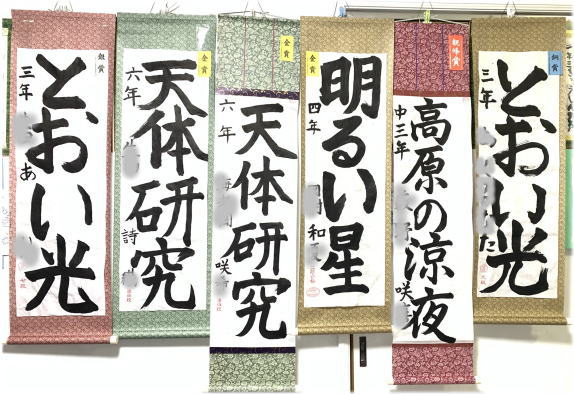 銅賞
とおい光
三年 た
観峰賞
高原の涼夜
中三年 咲
金賞
明るい星
四年 和
金賞
天体研究
六年 咲
金賞
天体研究
六年 詩
銀賞
とおい光
三年 あ